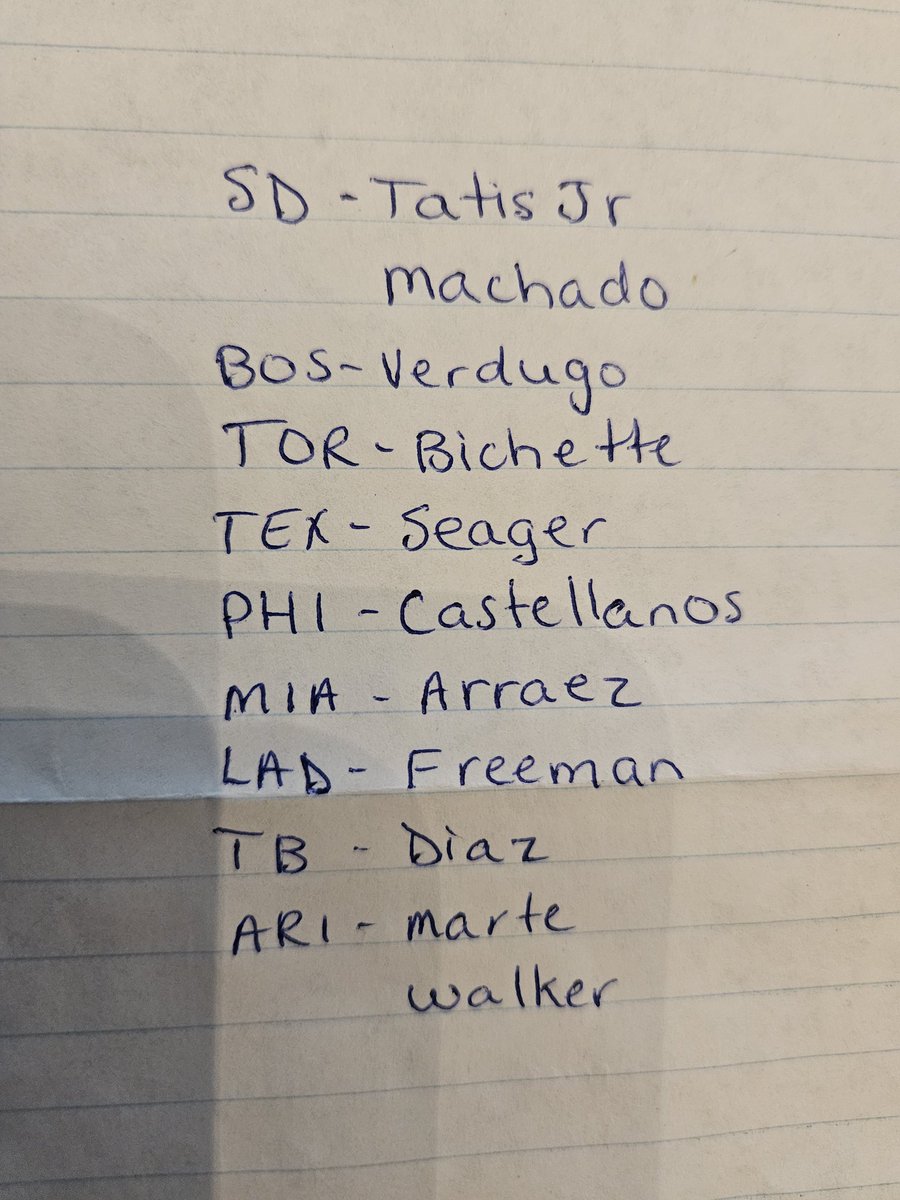 SD - Tatis Jr
machado
BOS - Verdugo
TOR - Bichette
TEX - Seager
PHI - Castellanos
MIA - Arraez
LAD - Freeman
TB - Diaz
ARI - marte
walker